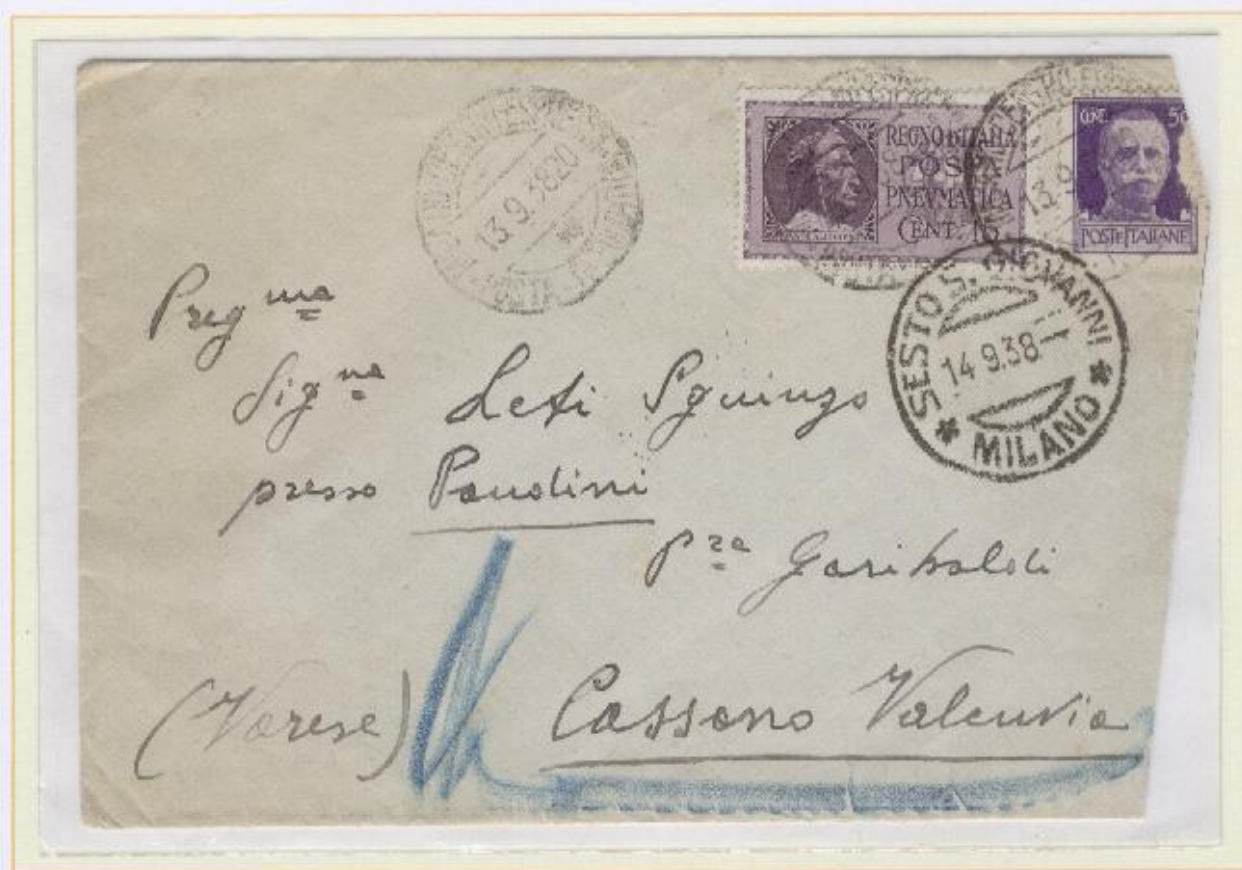 REGNO D'ITALIA
POSTA
PNEVMATICA
CENT. 15
CENT. 50
POSTE ITALIANE
13.9.38 20
POSTA
13.9
SESTO S. GIOVANNI
14.9.38
* MILANO *
Preg ma
Sig na Leti Sguinzo
presso Pandini
pza Garibaldi
(Varese) Cassano Valcuvia